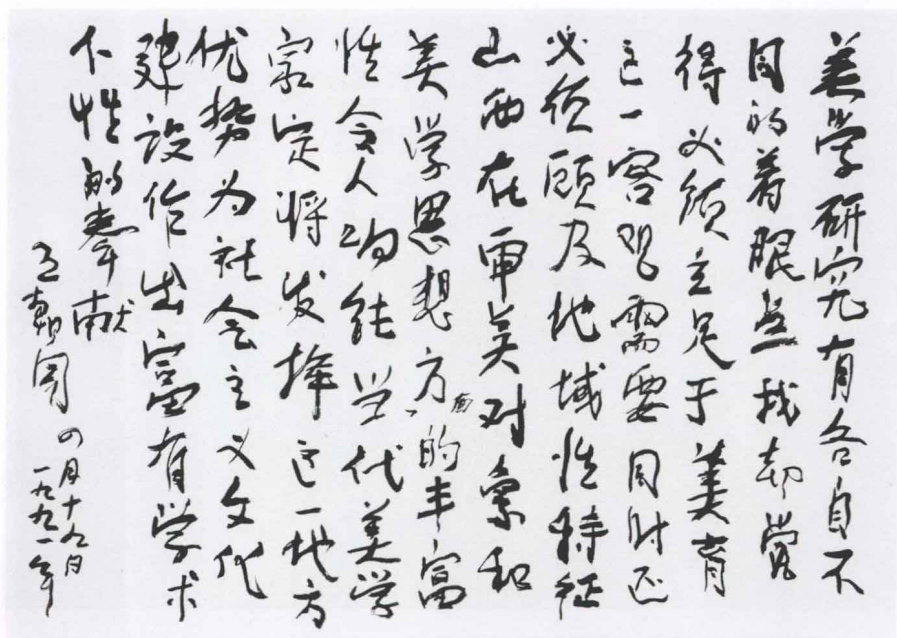 美学研究有各自不
同的着眼点我却觉
得必须立足于美育
这一客观需要同时还
必须顾及地域性特征
山西在审美对象和
美学思想方面的丰富
性令人 当代美学
家定将发挥这一地方
优势为社会主义文化
建设作出富有学术
个性的奉献
王朝闻 四月十九日
一九九一年